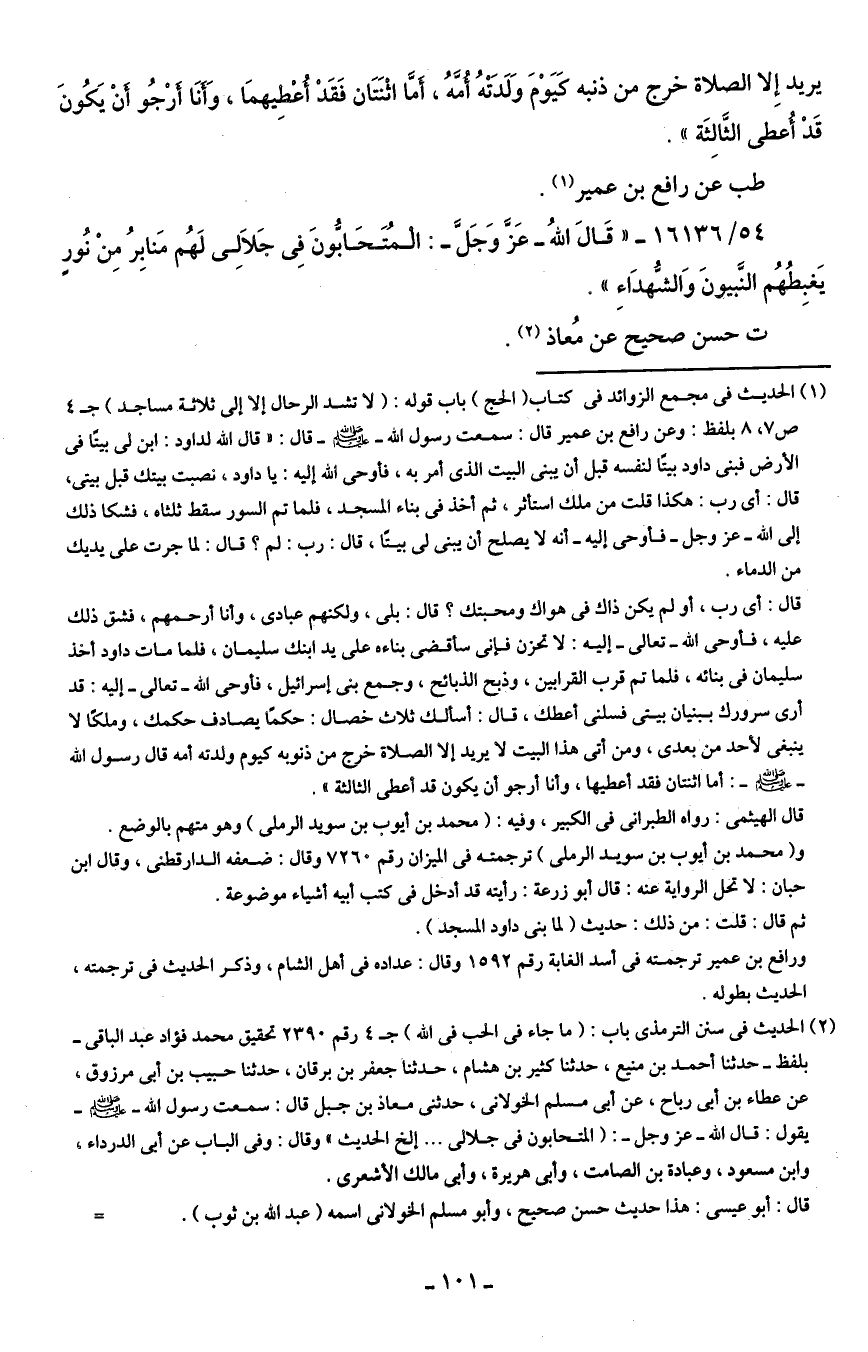 يريد إلا الصلاة خرج من ذنبه كَيَوْمَ وَلَدَتْهُ أُمَّهُ ، أَمَّا اثْنَتَان فَقَدْ أُعْطِيهِمَا ، وَأَنَا أَرْجُو أَنْ يَكُونَ
قَدْ أُعطى الثَّالِثَة » .
طب عن رافع بن عمير(١) .
٥٤/ ١٦١٣٦ ـ « قَـالَ اللهُ ـ عَزَّ وَجَلَّ ـ : الْـمُتَـحَـابُّونَ فِى جَلاَلِـى لَهُم مَنابِرُ مِنْ نُورٍ
يَغبِطُهُم النَّبِيونَ وَالشُّهدَاءِ » .
ت حسن صحيح عن مُعاذ (٢) .
(١) الحديث فى مجمع الزوائد فى كتاب( الحج ) باب قوله : ( لا تشد الرحال إلا إلى ثلاثة مساجد ) جـ ٤
ص٧، ٨ بلفظ : وعن رافع بن عمير قال : سمعت رسول الله ـ ﷺ ـ قال : « قال الله لداود : ابن لى بيتًا فى
الأرض فبنى داود بيتًا لنفسه قبل أن يبنى البيت الذى أمر به ، فأوحى الله إليه : يا داود ، نصبت بيتك قبل بيتى،
قال : أى رب : هكذا قلت من ملك استأثر ، ثم أخذ فى بناء المسجد ، فلما تم السور سقط ثلثاه ، فشكا ذلك
إلى الله ـ عز وجل ـ فـأوحى إليه ـ أنه لا يصلح أن يبنى لى بيـتًا ، قال : رب : لم ؟ قـال : لما جرت على يديك
من الدماء .
قال : أى رب ، أو لم يكن ذاك فى هواك ومحبتك ؟ قال : بلى ، ولكنهم عبادى ، وأنا أرحـمهم ، فشق ذلك
عليه ، فـأوحى الله ـ تعالى ـ إليـه : لا تحزن فـإنى سأقـضى بناءه على يد ابنك سليمـان ، فلما مـات داود أخذ
سليمان فى بنائه ، فلما تم قرب القرابين ، وذبح الذبائح ، وجـمع بنى إسرائيل ، فأوحى الله ـ تعالى ـ إليه : قد
أرى سرورك بـبنيان بيـتى فسلنى أعطك ، قـال : أسألـك ثلاث خصـال : حكمًا يصـادف حكمك ، وملكًا لا
ينبغى لأحد من بعدى ، ومن أتى هذا البيت لا يريد إلا الصـلاة خرج من ذنوبه كيوم ولدته أمه قال رسـول الله
ـ ﷺ ـ : أما اثنتان فقد أعطيها ، وأنا أرجو أن يكون قد أعطى الثالثة » .
قال الهيثمى : رواه الطبرانى فى الكبير ، وفيه : ( محمد بن أيوب بن سويد الرملى ) وهو متهم بالوضع .
و( محـمد بن أيوب بن سويـد الرملى ) ترجمتـه فى الميزان رقم ٧٢٦٠ وقال : ضـعفه الـدارقطنى ، وقال ابن
حبان : لا تحل الرواية عنه : قال أبو زرعة : رأيته قد أدخل فى كتب أبيه أشياء موضوعة .
ثم قال : قلت : من ذلك : حديث ( لما بنى داود المسجد ) .
ورافع بن عمير ترجمـته فى أسد الغابة رقم ١٥٩٢ وقال : عداده فى أهل الشام ، وذكـر الحديث فى ترجمته ،
الحديث بطوله .
(٢) الحديث فى سنن الترمذى باب : ( ما جاء فى الحب فى الله ) جـ ٤ رقم ٢٣٩٠ تحقيق محمد فؤاد عبد الباقى ـ
بلفظ ـ حدثنا أحمد بن منيع ، حدثنا كثير بن هشام ، حـدثنا جعفر بن برقان ، حدثنا حـبيب بن أبى مرزوق ،
عن عطاء بن أبى رباح ، عن أبى مسلم الخولانى ، حدثنى معـاذ بن جـبل قال : سـمعت رسول الله ـ ﷺ ـ
يقول : قـال الله ـ عز وجل ـ : ( المتـحابون فى جـلالى ... إلخ الحديث » وقال : وفى الباب عن أبى الدرداء ،
وابن مسعود ، وعبادة بن الصامت ، وأبى هريرة ، وأبى مالك الأشعرى .
قال : أبو عيسى : هذا حديث حسن صحيح ، وأبو مسلم الخولانى اسمه ( عبد الله بن ثوب ) . =
ـ ١٠١ ـ